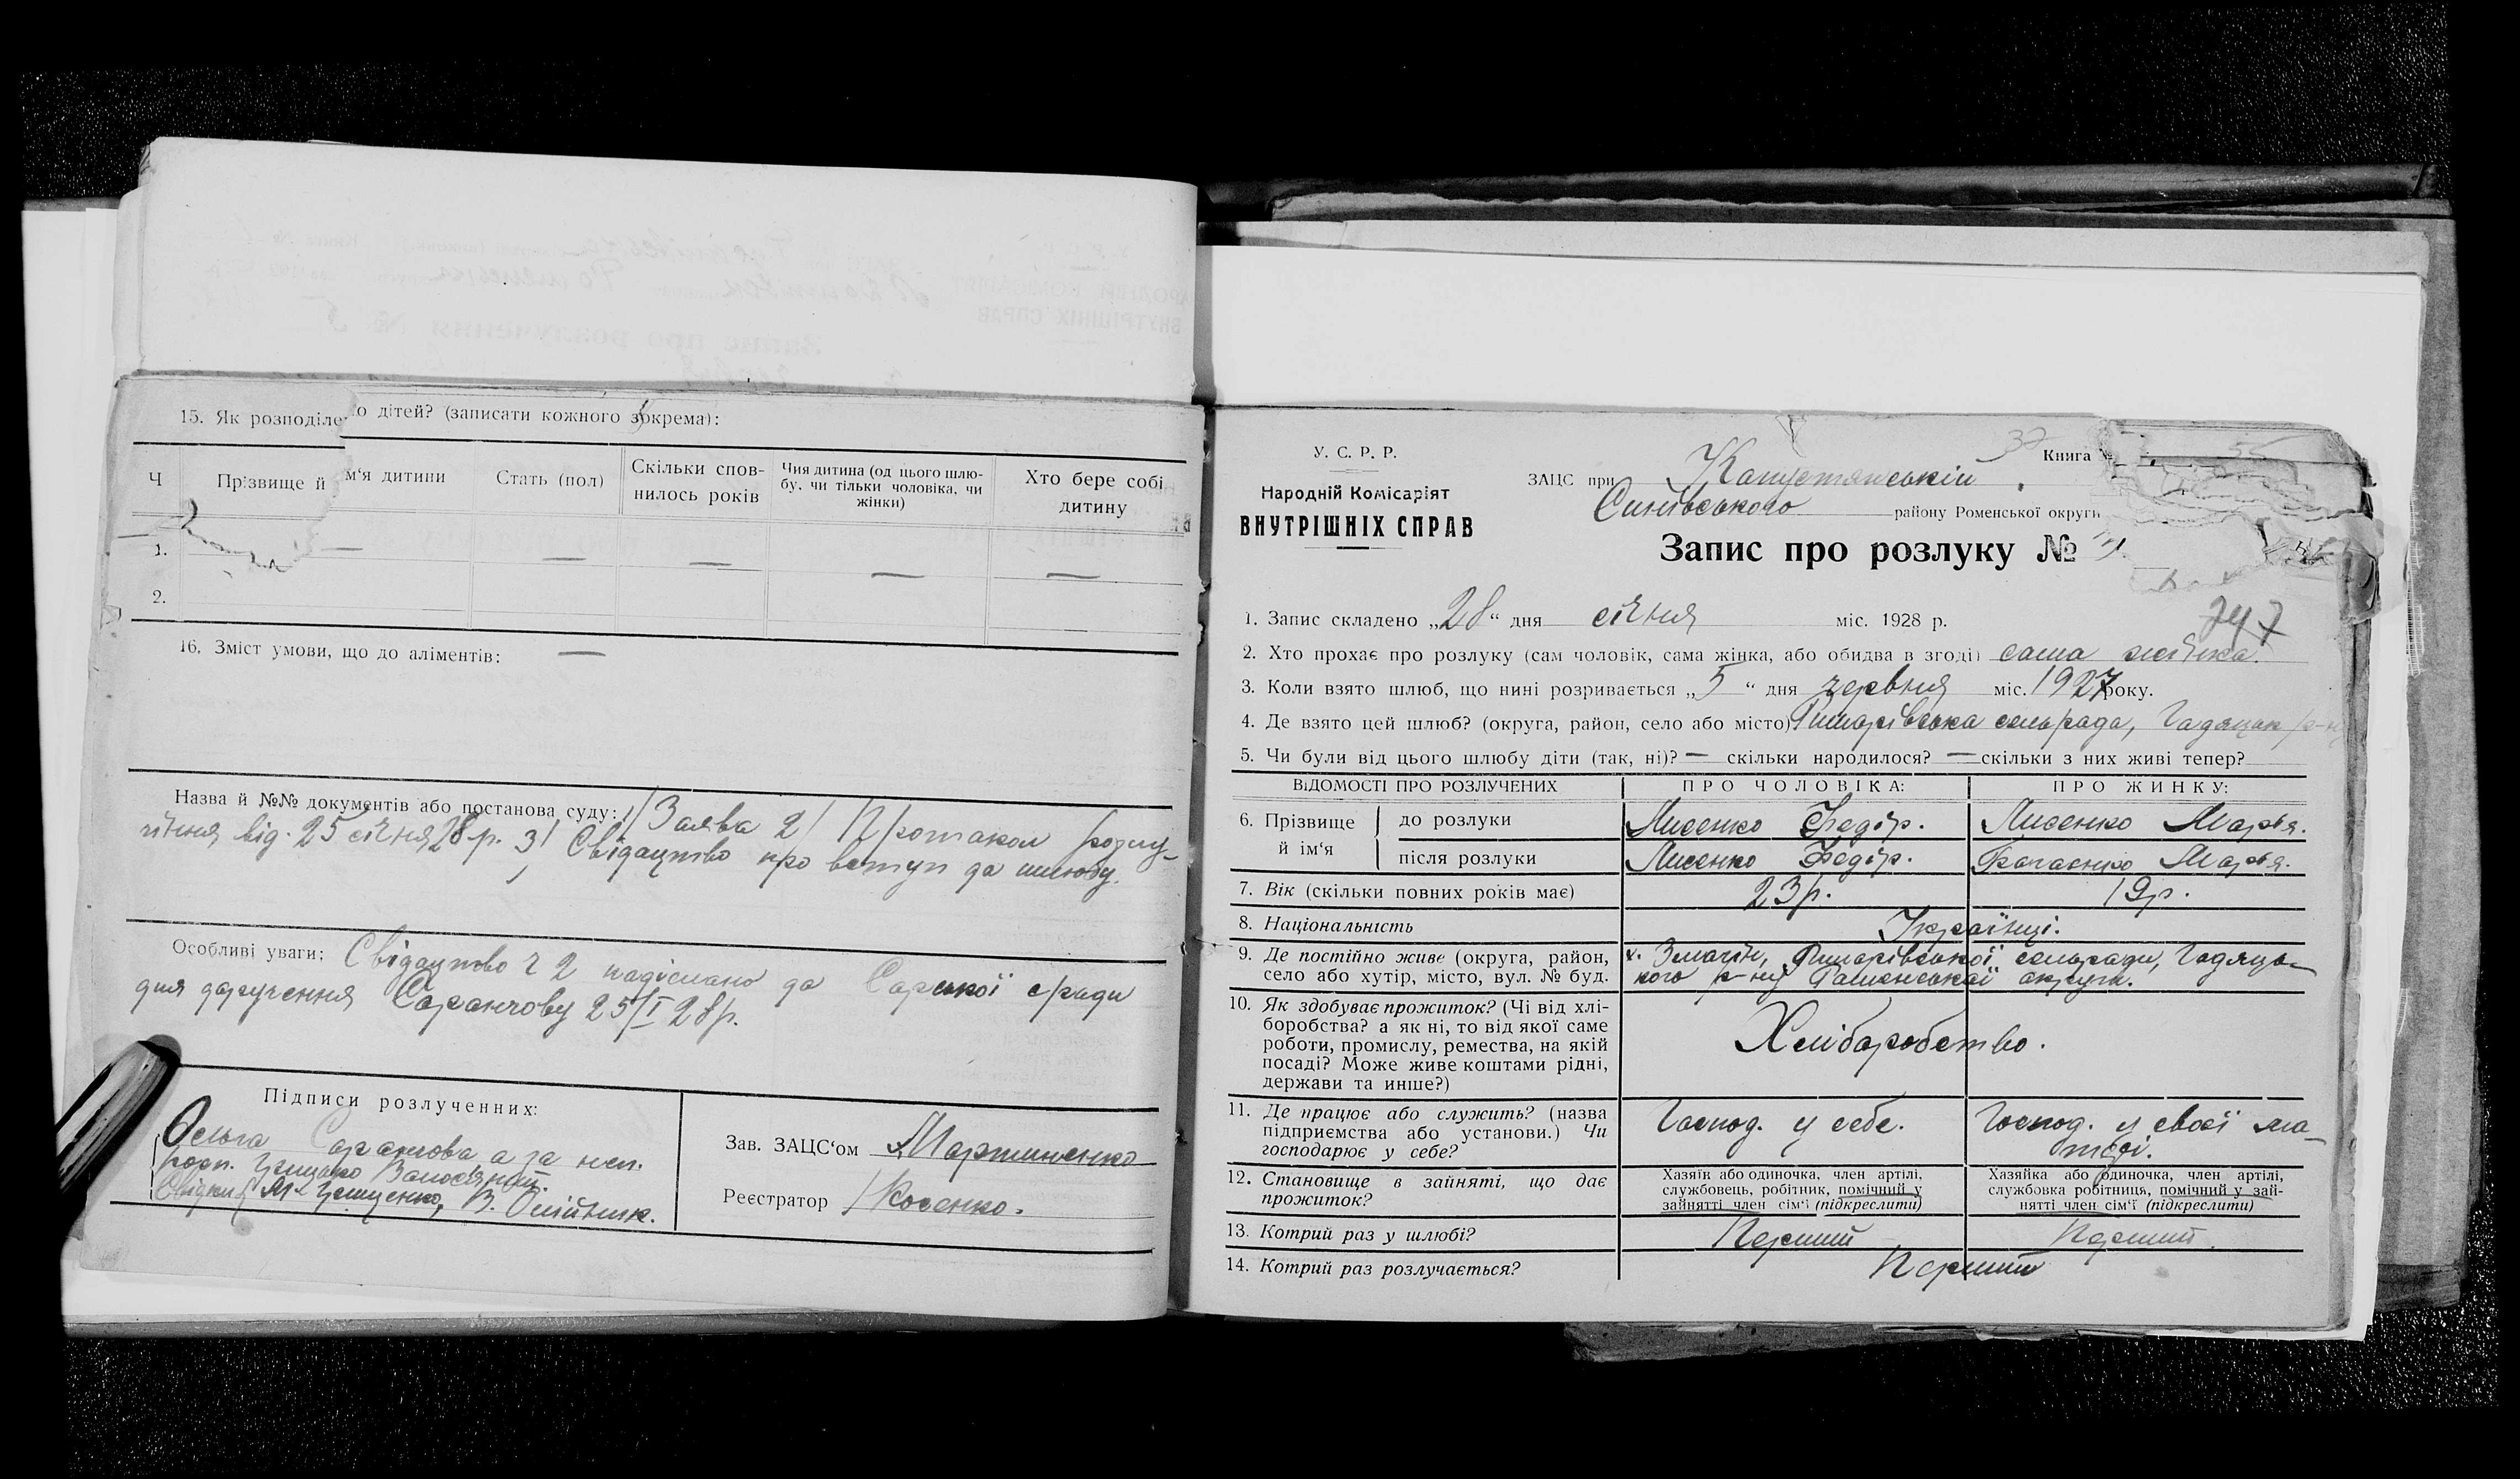 15. Як розподіле о дітей? (записати кожного зокрема):
Ч
Прізвище й м'я дитини
Стать (пол)
Скільки спов-
нилось років
Чия дитина (од цього шлю-
бу, чи тільки чоловіка, чи
жінки)
Хто бере собі
дитину
1. — — — — —
2.
16. Зміст умови, що до аліментів: —
Назва й №№ документів або постанова суду: 1/ Заява 2/ Протокол розлу-
чення від. 25 січня 28 р. 3/ Свідоцтво про вступ до шлюбу.
Особливі уваги: Свідоцтво ч 2 надіслано до Сарської сради
для доручення Саранчову 25/I 28 р.
Підписи розлученних:
Ольга Саранчова а за неп.
росп. Грицько
Свідки Грищенко, В. Олійник.
Зав. ЗАЦС'ом Мартиненко
Реєстратор Косенко.
У. С. Р. Р.
Народній Комісаріят
ВНУТРІШНІХ СПРАВ
37
Книга №
55
ЗАЦС при Капустянській
Синівського району Роменської округи
Запис про розлуку №
1. Запис складено „28“ дня січня міс. 1928 р.
2. Хто прохає про розлуку (сам чоловік, сама жінка, або обидва в згоді) сама жінка.
3. Коли взято шлюб, що нині розривається „5“ дня червня міс. 1927 року.
4. Де взято цей шлюб? (округа, район, село або місто) Римарівська сельрада, Гадяцьк р-н
5. Чи були від цього шлюбу діти (так, ні)? — скільки народилося? — скільки з них живі тепер?
ВІДОМОСТІ ПРО РОЗЛУЧЕНИХ
ПРО ЧОЛОВІКА:
ПРО ЖИНКУ:
6. Прізвище й ім'я
до розлуки Лисенко Федір. Лисенко Марія.
після розлуки Лисенко Федір. Марія.
7. Вік (скільки повних років має) 23 р. 19 р.
8. Національність Українці.
9. Де постійно живе (округа, район,
село або хутір, місто, вул. № буд.
х. Змагін, Римарівської сельради, Гадяць-
кого р-ну Роменської округи.
10. Як здобуває прожиток? (Чі від хлі-
боробства? а як ні, то від якої саме
роботи, промислу, ремества, на якій
посаді? Може живе коштами рідні,
держави та инше?)
Хліборобство.
11. Де працює або служить? (назва
підприємства або установи.) Чи
господарює у себе?
Господ. у себе.
Господ. у своєї ма-
тері.
12. Становище в зайняті, що дає
прожиток?
Хазяїн або одиночка, член артілі,
службовець, робітник, помічний у
зайнятті член сім'ї (підкреслити)
Хазяйка або одиночка, член артілі,
службовка робітниця, помічний у зай-
нятті член сім'ї (підкреслити)
13. Котрий раз у шлюбі? Перший Перший.
14. Котрий раз розлучається? Перший